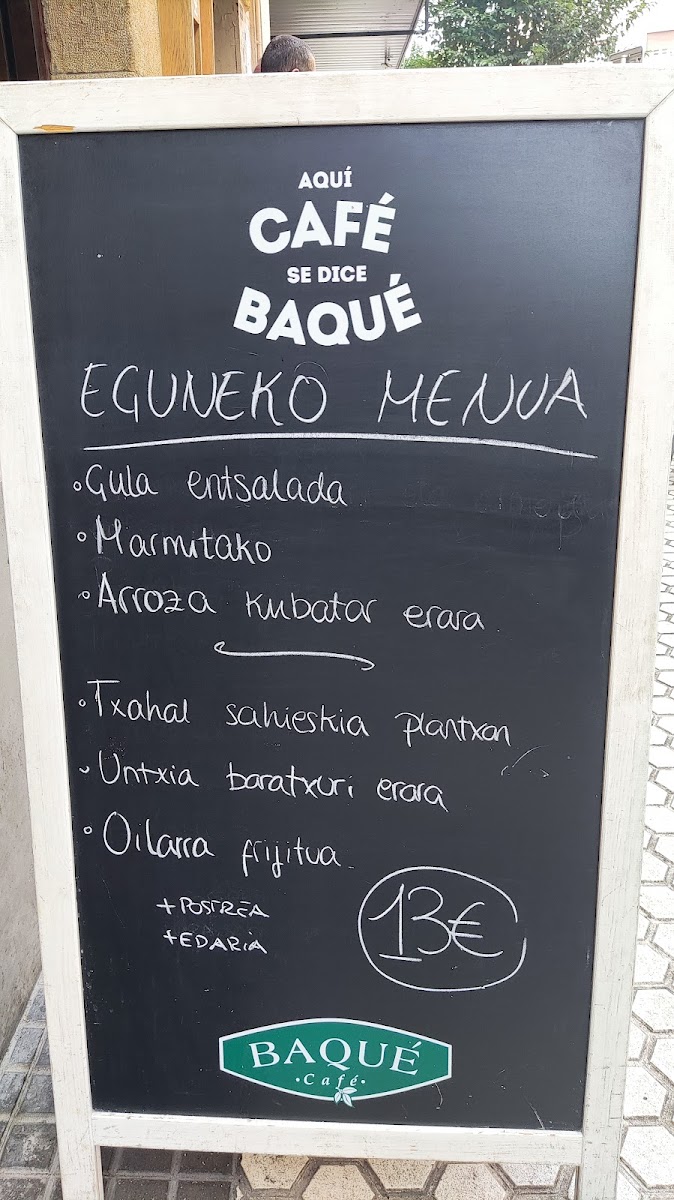 AQUÍ
CAFÉ
SE DICE
BAQUÉ
EGUNEKO MENUA
Gula entsalada
Marmitako
Arroza kubatar erara
Txahal sahieskia plantxan
Untxia baratxuri erara
Oilarra frijitua
+ POSTREA
+ EDARIA
13€
BAQUÉ
·Café·